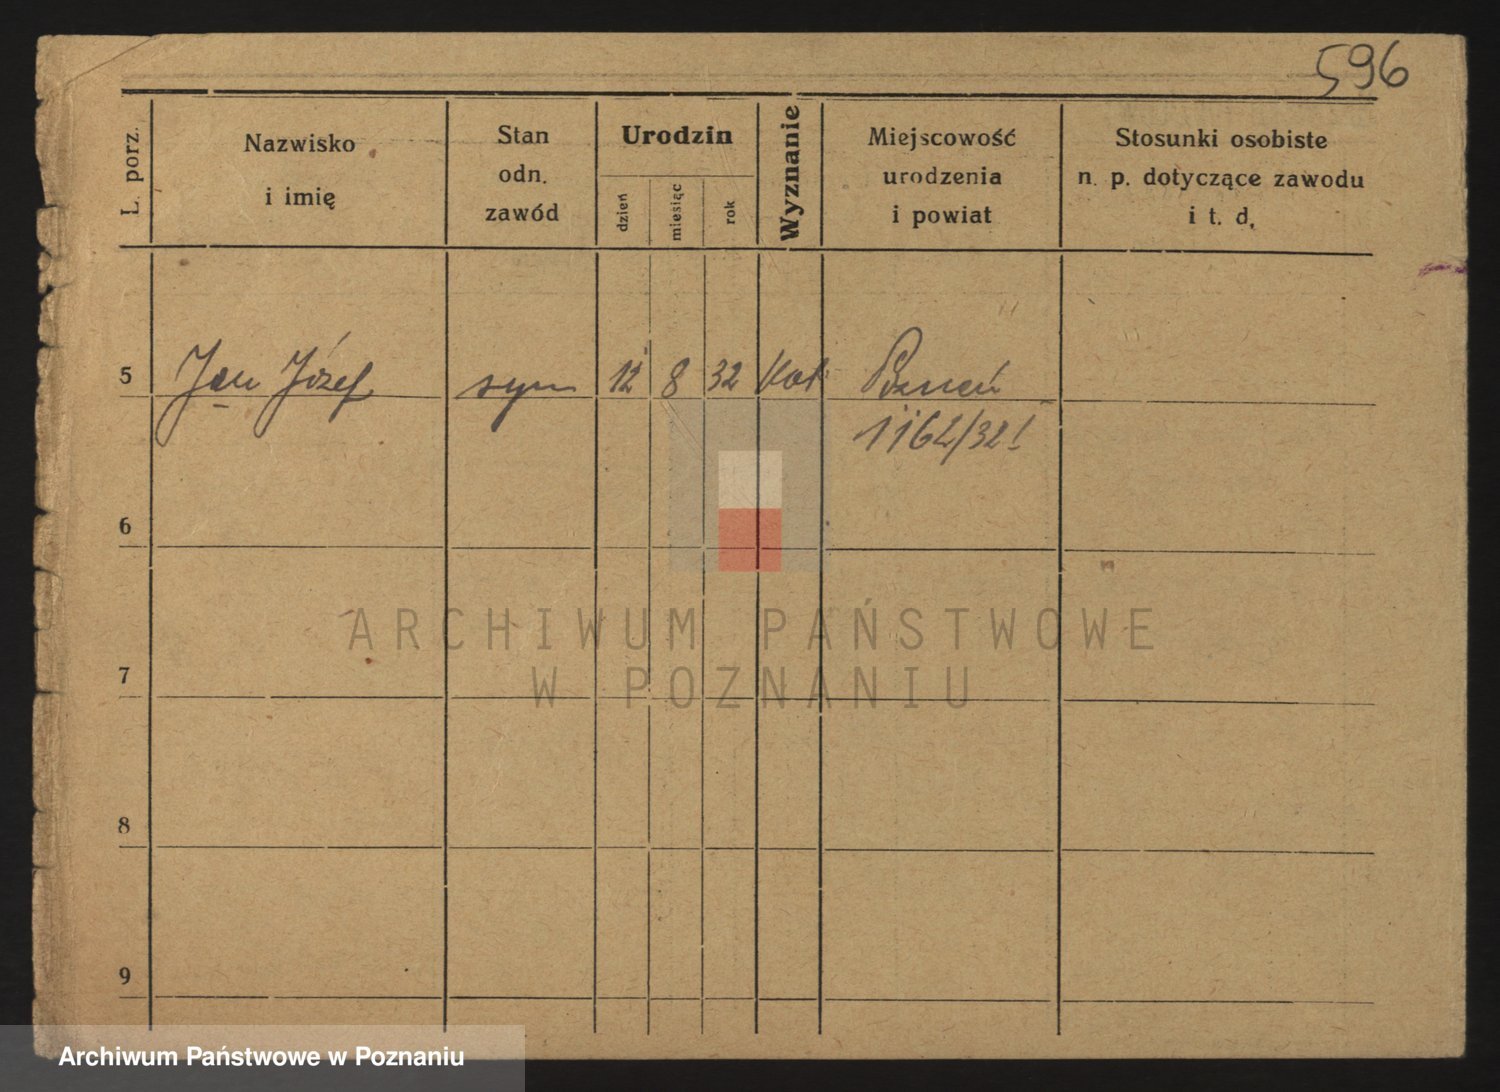 596
L. porz.
Nazwisko
i imię
Stan
odn.
zawód
Urodzin
dzień
miesiąc
rok
Wyznanie
Miejscowość
urodzenia
i powiat
Stosunki osobiste
n. p. dotyczące zawodu
i t. d,
5 Jan Józef syn 12 8 32 Kat. Poznań
1162/32
6
ARCHIWUM PAŃSTWOWE
W POZNANIU
7
8
9
Archiwum Państwowe w Poznaniu